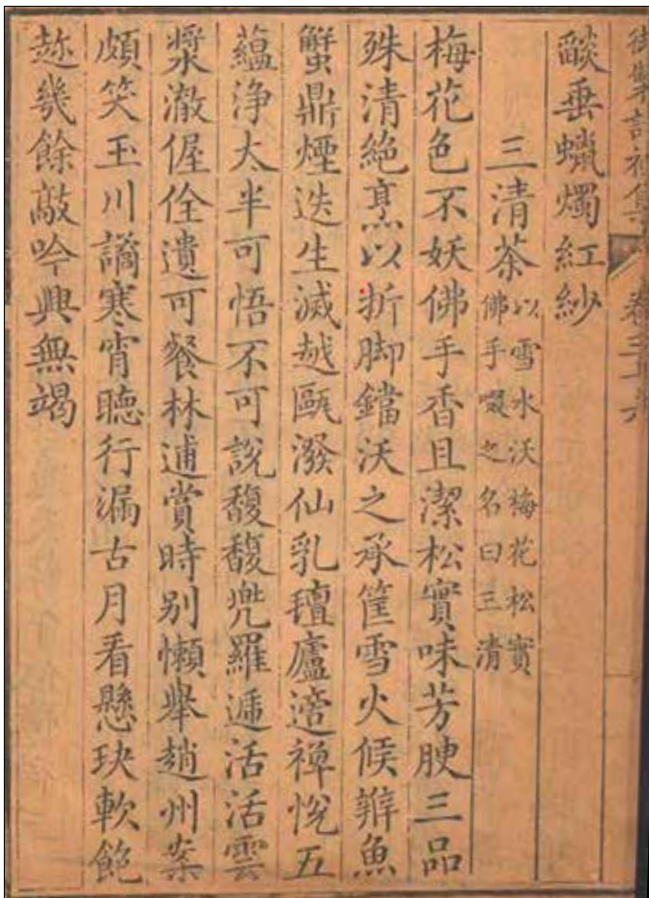 御製詩初集 卷三十六
燄垂蠟燭紅紗
三清茶
以雪水沃梅花松實
佛手啜之名曰三清
梅花色不妖佛手香且潔松實味芳腴三品
殊清絶烹以折脚鐺沃之承筐雪火候辨魚
蟹鼎煙迭生滅越甌潑仙乳氊廬適禪悅五
藴浄太半可悟不可說馥馥兜羅遞活活雲
漿澈偓佺遺可餐林逋賞時别懶舉趙州案
頗笑玉川譎寒宵聽行漏古月看懸玦軟飽
趂幾餘敲吟興無竭